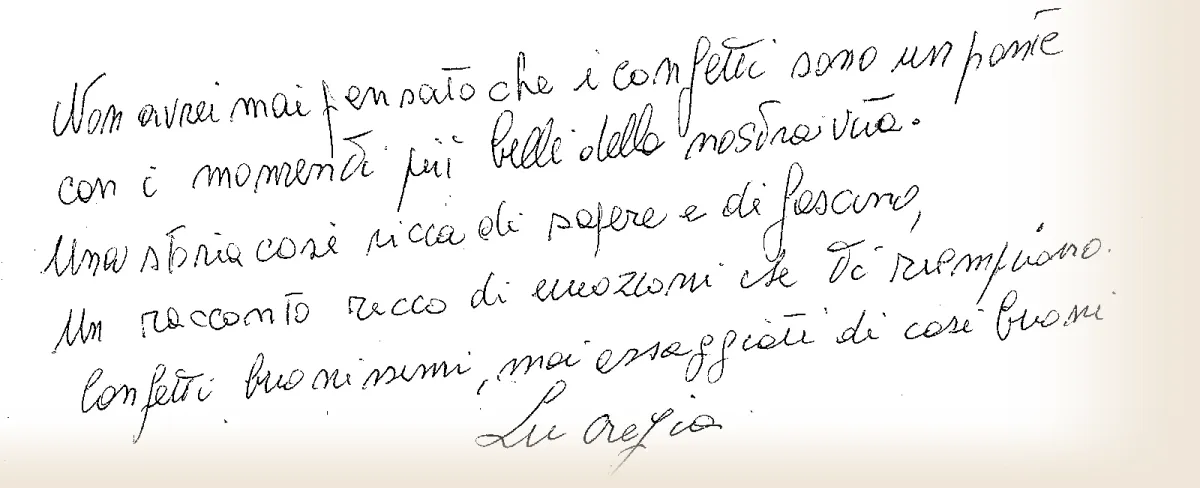 Non avrei mai pensato che i confetti sono un ponte
con i momenti più belli della nostra vita.
Una storia così ricca di sapere e di fascino,
Un racconto ricco di emozioni che ti riempiono.
Confetti buonissimi, mai assaggiati di così buoni